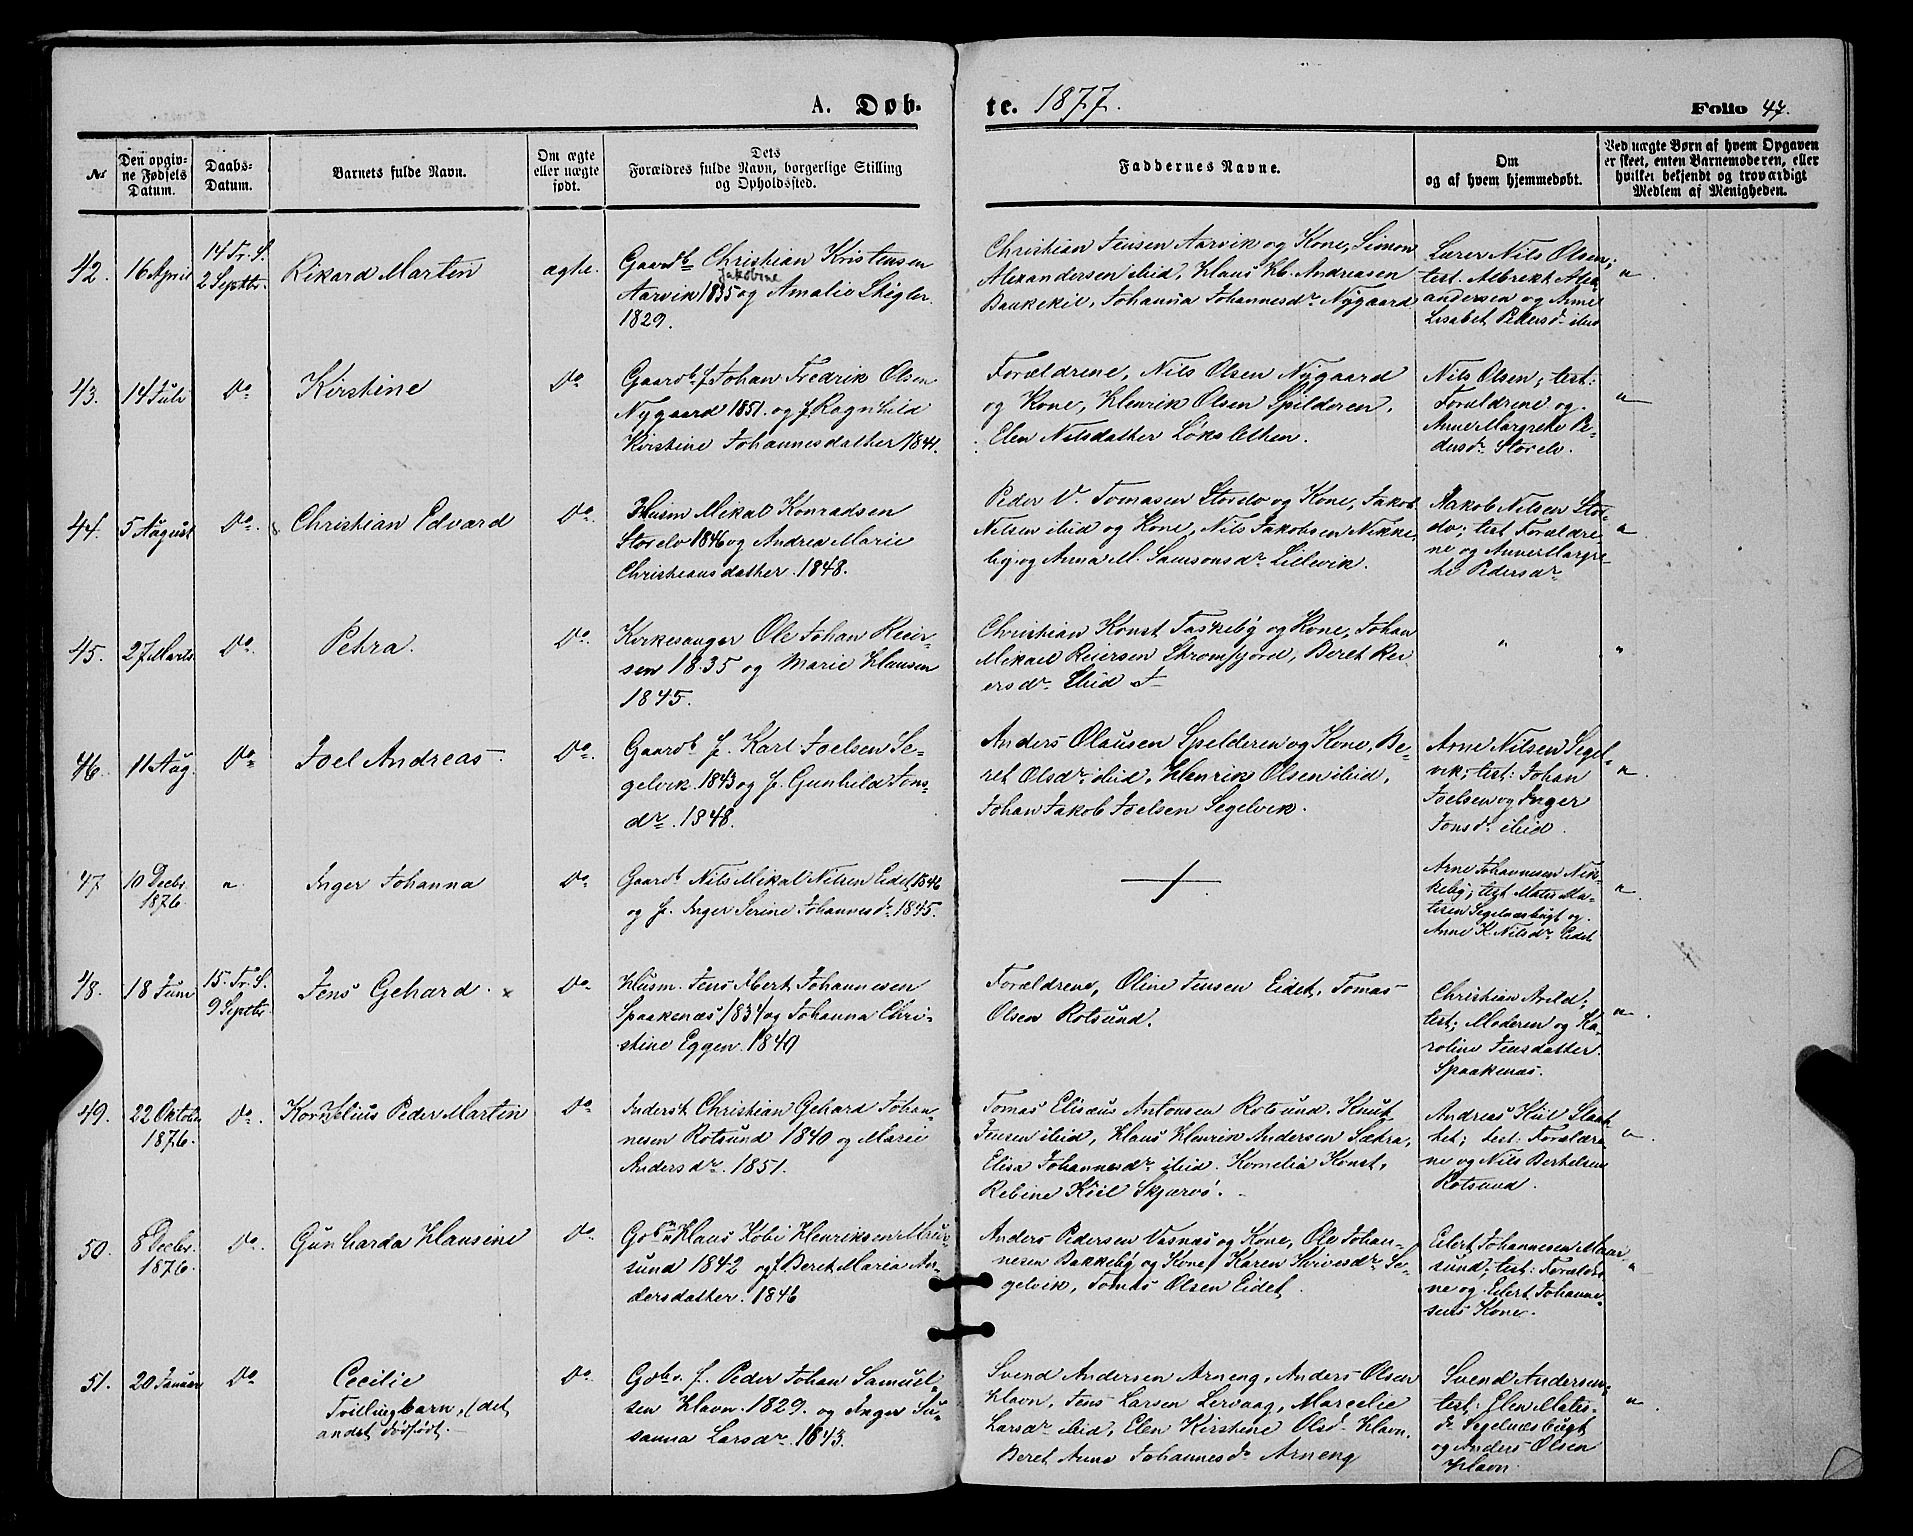 A. Døb-
te. 1877.
Folio 47.
№
Den opgiv-
ne Fødsels
Datum.
Daabs-
Datum.
Barnets fulde Navn.
Om ægte
eller uægte
født.
Dets
Forældres fulde Navn, borgerlige Stilling
og Opholdssted.
Faddernes Navne.
Om
og af hvem hjemmedøbt.
Ved uægte Børn af hvem Opgaven
er skeet, enten Barnemoderen, eller
hvilket bekjendt og troværdigt
Medlem af Menigheden.
42.
16 April
14 Tr. S.
2 Septbr.
Rikard Martin
ægte.
Gaardb Christian Kristensen
Jakobine
Aarvik 1835 og Amalie Stigler
1829.
Christian Jensen Aarvik og Kone, Simon
Alexandersen ibid, Klaus Hb. Andreasen
Bankekil, Johanna Johannesdr Nygaard
Lærer Nils Olsen;
test. Albrekt Alex-
andersen og Anne
Lisabet Pedersd ibid
"
43.
14 Juli
Do
Kirstine
Do
Gaardb. f Johan Fredrik Olsen
Nygaard 1851. og f. Ragnhild
Kirstine Johannesdatter 1841.
Forældrene, Nils Olsen Nygaard
og Kone, Henrik Olsen Spilderen,
Elen Nilsdatter Løksletten.
Nils Olsen; test:
Forældrene og
Anne Margrete Pe-
dersdr Storelv.
"
44.
5 August
Do.
Christian Edvard
Do.
Husm Mikal Konradsen
Storelv 1846 og Andrea Marie
Christiansdatter. 1848.
Peder V. Tomasen Storelv og Kone, Jakob
Nilsen ibid og Kone, Nils Jakobsen Nikke-
by og Anna M. Samsonsdr Lillevik.
Jakob Nilsen Stor-
elv; test Forældre-
ne og Anne Margre-
te Pedersdr
"
45.
27 Marts
Do.
Petra.
Do.
Kirkesanger Ole Johan Reier-
sen 1835 og Marie Hansen
1845.
Christian Konst Taskeby og Kone, Johan
Mikael Reiersen Strømfjord, Beret Rei-
ersdr ibid
"
"
46.
11 Aug.
Do
Joel Andreas
Do.
Gaardb f. Karl Joelsen Se-
gelvik. 1843 og f. Gunhild Jons-
dr. 1848.
Anders Olausen Spilderen og Kone, Be-
ret Olsdr. ibid, Henrik Olsen ibid,
Johan Jakob Joelsen Segelvik.
Arne Nilsen Segel-
vik; test: Johan
Joelsen og Inger
Jonsdr ibid.
"
47
10 Decbr.
1876.
"
Inger Johanna
Do
Gaardb Nils Mikal Nilsen Eidet, 1846
og f. Inger Serine Johannesdr. 1845.
Arne Johannesen Nik-
keby; test Mates Ma-
tisen Segelnæsbugt og
Anne K. Nilsdr Eidet
"
48.
18 Juni
15. Tr. S.
9 Septbr.
Jens Gehard.
Do.
Husm. Jens Mort Johannesen
Spaakenæs 1834 og Johanna Chri-
stine Eggen. 1840
Forældrene, Oline Jensen Eidet, Tomas
Olsen Rotsund.
Christian Arild;
test; Moderen og Ka-
roline Jensdatter
Spaakenæs.
"
49.
22 Oktober
1876.
Do.
Kornelius Peder Martin
Do
Inderst. Christian Gehard Johan-
nesen Rotsund 1840 og Marie
Andersdr. 1851.
Tomas Elisæus Antonsen Rotsund. Knut
Jensen ibid, Klaus Henrik Andersen Sætra,
Elisa Johannesdr ibid. Kornelia Konst,
Rebine Kiil Skjærvø.
Andreas Kiil Slaat-
tet; test: Forældre-
ne og Nils Bertelsen
Rotsund.
"
50.
8 Decbr.
1876.
Do.
Gunharda Hansine
Do
Klaus Tobi Henriksen Maur-
sund 1842 og f Beret Maria An-
dersdatter. 1846
Anders Pedersen Vasnæs og Kone, Ole Johan-
nesen Bakkeby og Kone, Karen Se-
gelvik, Tomas Olsen Eidet.
Eilert Johannesen Maur-
sund; test: Forældre-
ne og Eilert Johanne-
sens Kone.
"
51.
20 Januar
Do
Cecilie
Tvillingbarn, (det
andet dødfødt.
Do.
Gbr. f. Peder Johan Samuel-
sen Havn. 1829. og Inger Su-
sanna Larsdr. 1843.
Svend Andersen Arneng, Anders Olsen
Havn, Jens Larsen Lervaag, Marcelie
Larsdr ibid, Elen Kirstine Olsd Havn.
Beret Anne Johannesdr Arneng
Svend Andersen,
test: Elen Mates-
dr Segelnæsbugt
og Anders Olsen
Havn.
"